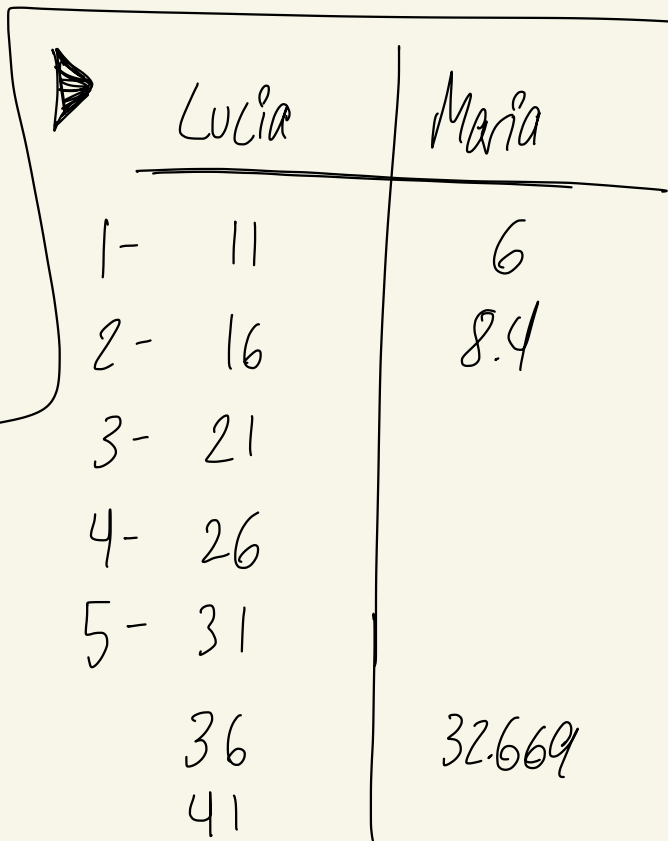 Lucia Maria
1- 11 6
2- 16 8.4
3- 21
4- 26
5- 31
36 32.669
41